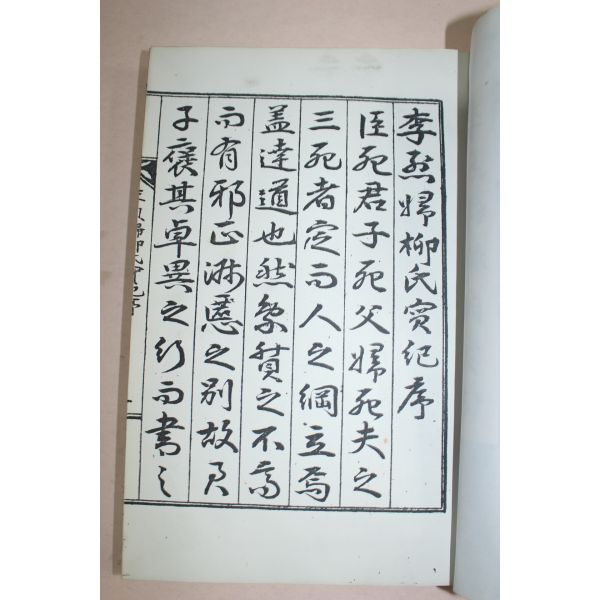 李烈婦柳氏實紀序
臣死君子死父婦死夫之
三死者定而人之綱立焉
盖達道也然象賛之不高
而有邪正淑慝之別故君
子褒其卓異之行而書之